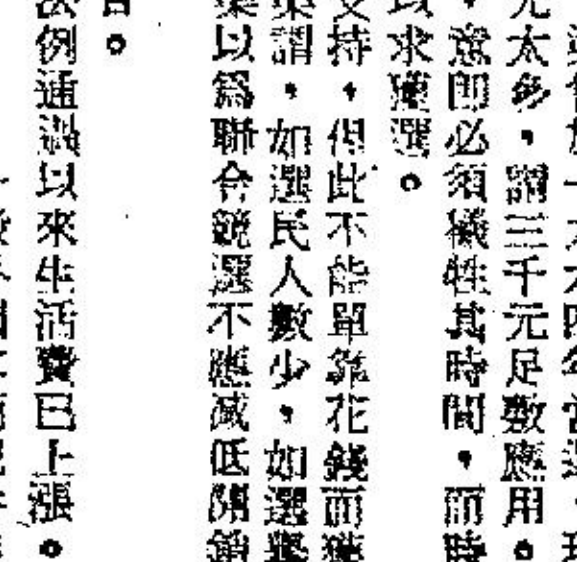 元太多，謂三千元足數應用。
，意即必須犧牲其時間，而時
以求獲選。
支持，但此不能單靠花錢而獲
謂，如選民人數少，如選舉
以爲聯合競選不應減低開銷
。
法例通過以來生活費已上漲。